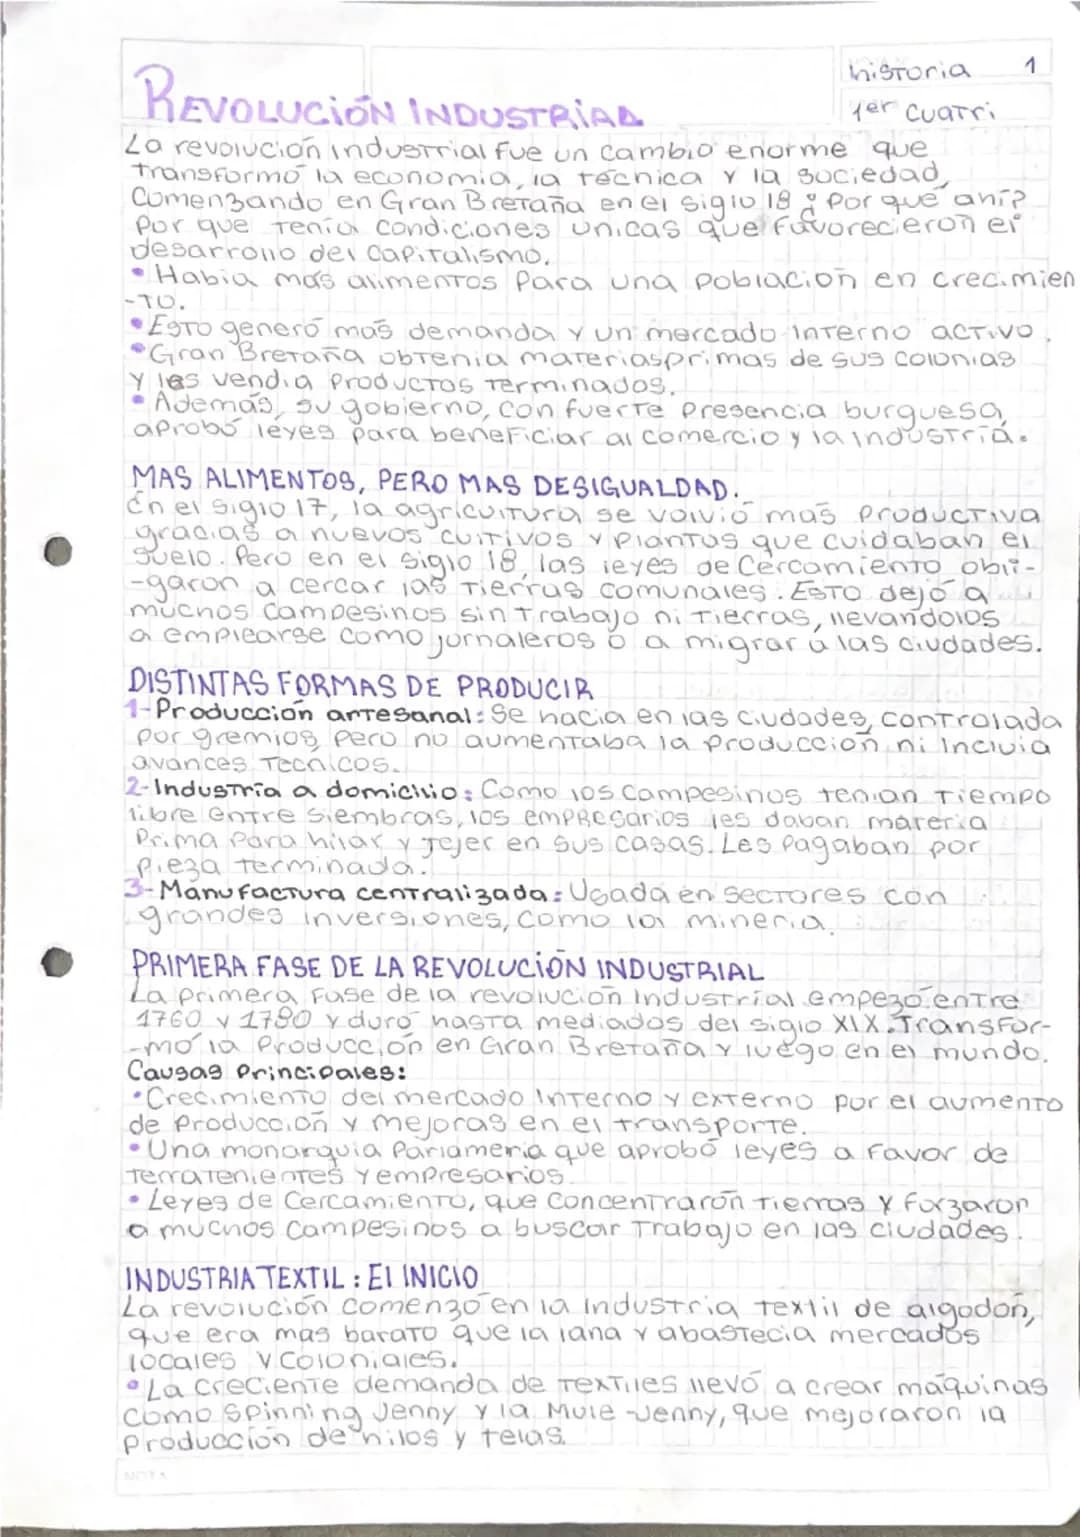 historia 1
1er cuatri
REVOLUCIÓN INDUSTRIAL
La revolución industrial fue un cambio enorme que
transformó la economía, la técnica y la sociedad,
comenzando en Gran Bretaña en el siglo 18 ¿Por qué ahí?
Por que tenía condiciones únicas que favorecieron el
desarrollo del capitalismo.
• Había más alimentos para una población en crecimien
-to.
• Esto generó más demanda y un mercado interno activo.
• Gran Bretaña obtenía materiasprimas de sus colonias
y les vendía productos terminados.
• Además, su gobierno, con fuerte presencia burguesa,
aprobó leyes para beneficiar al comercio y la industria.
MAS ALIMENTOS, PERO MAS DESIGUALDAD.
En el siglo 17, la agricultura se volvió más productiva
gracias a nuevos cultivos y plantas que cuidaban el
suelo. Pero en el siglo 18, las leyes de Cercamiento obli-
-garon a cercar las tierras comunales. Esto dejó a
muchos campesinos sin trabajo ni tierras, llevándolos
a emplearse como jornaleros o a migrar a las ciudades.
DISTINTAS FORMAS DE PRODUCIR
1-Producción artesanal: Se hacía en las ciudades, controlada
por gremios, pero no aumentaba la producción ni incluía
avances técnicos.
2-Industria a domicilio: Como los campesinos tenían tiempo
libre entre siembras, los empresarios les daban materia
prima para hilar y tejer en sus casas. Les pagaban por
pieza terminada.
3-Manufactura centralizada: Usada en sectores con
grandes inversiones, como la minería.
PRIMERA FASE DE LA REVOLUCIÓN INDUSTRIAL
La primera fase de la revolución industrial empezó entre
1760 y 1780 y duró hasta mediados del siglo XIX. Transfor-
-mó la producción en Gran Bretaña y luego en el mundo.
Causas principales:
• Crecimiento del mercado interno y externo por el aumento
de producción y mejoras en el transporte.
• Una monarquía parlameria que aprobó leyes a favor de
terratenientes y empresarios.
• Leyes de Cercamiento, que concentraron tierras y forzaron
a muchos campesinos a buscar trabajo en las ciudades.
INDUSTRIA TEXTIL: El INICIO
La revolución comenzó en la industria textil de algodón,
que era más barato que la lana y abastecía mercados
locales y coloniales.
• La creciente demanda de textiles llevó a crear máquinas
como Spinning Jenny y la Mule-Jenny, que mejoraron la
producción de hilos y telas.
NOTA